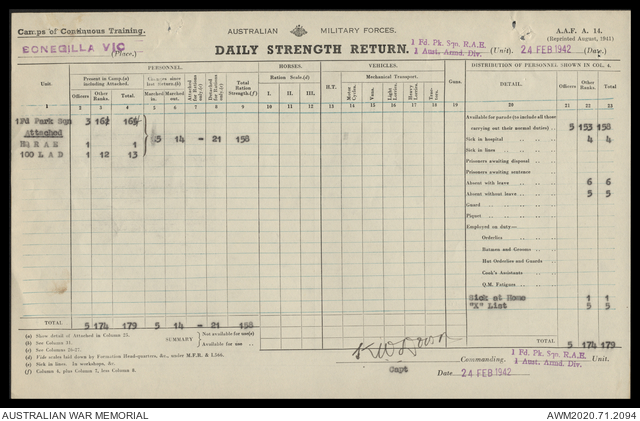 Camps of Continuous Training.
AUSTRALIAN MILITARY FORCES.
A.A.F. A. 14.
(Reprinted August, 1941)
BONEGILLA VIC (Place.)
DAILY STRENGTH RETURN.
1 Fd. Pk. Sqn. R.A.E.
1 Aust. Armd. Div. (Unit).
24 FEB 1942 (Day.)
PERSONNEL. HORSES. VEHICLES. DISTRIBUTION OF PERSONNEL SHOWN IN COL. 4.
Unit. Present in Camp(a) including Attached. Changes since last Return.(b) Attached for Rations only(c) Detached for Rations only(c) Total Ration Strength(f) Ration Scale.(d) H.T. Mechanical Transport. Guns. DETAIL. Officers Other Ranks. Total.
Officers Other Ranks. Total. Marched in. Marched out. I. II. III. Motor Cycles. Vans. Light Lorries. Heavy Lorries. Trac- tors.
1 2 3 4 5 6 7 8 9 10 11 12 13 14 15 16 17 18 19 20 21 22 23
1 Fd Park Sqn 3 161 164
Attached 5 14 - 21 158
R A E 1 1
100 L A D 1 12 13
Available for parade (to include all those
carrying out their normal duties) 5 153 158
Sick in hospital 4 4
Sick in lines
Prisoners awaiting disposal
Prisoners awaiting sentence
Absent with leave 6 6
Absent without leave 5 5
Guard
Piquet
Employed on duty—
Orderlies
Batmen and Grooms
Hut Orderlies and Guards
Cook's Assistants
Q.M. Fatigues
Sick at Home 1 1
"X" List 5 5
TOTAL 5 174 179 5 14 - 21 158
TOTAL 5 174 179
(a) Show detail of Attached in Column 23.
(b) See Column 31.
(c) See Columns 26-27.
(d) Fide scales laid down by Formation Head-quarters, &c., under M.F.R. & I.566.
(e) Sick in lines. In workshops, &c.
(f) Column 4, plus Column 7, less Column 8.
SUMMARY
Not available for use(e)
Available for use
Capt
Commanding 1 Fd. Pk. Sqn. R.A.E.
1 Aust. Armd. Div. Unit.
Date 24 FEB 1942
AUSTRALIAN WAR MEMORIAL
AWM2020.71.2094